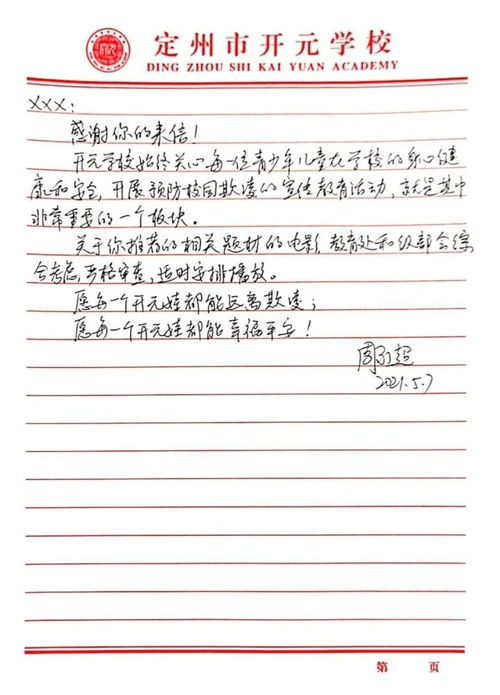 定州市开元学校
DING ZHOU SHI KAI YUAN ACADEMY
XXX:
感谢你的来信!
开元学校始终关心每一位青少年儿童在学校的身心健
康和安全,开展预防校园欺凌的宣传教育活动,就是其中
非常重要的一个板块。
关于你推荐的相关题材的电影,教育处和级部会综
合考虑,严格审查,适时安排播放。
愿每一个开元娃都能远离欺凌;
愿每一个开元娃都能幸福平安!
周
2021.5.7
第 页